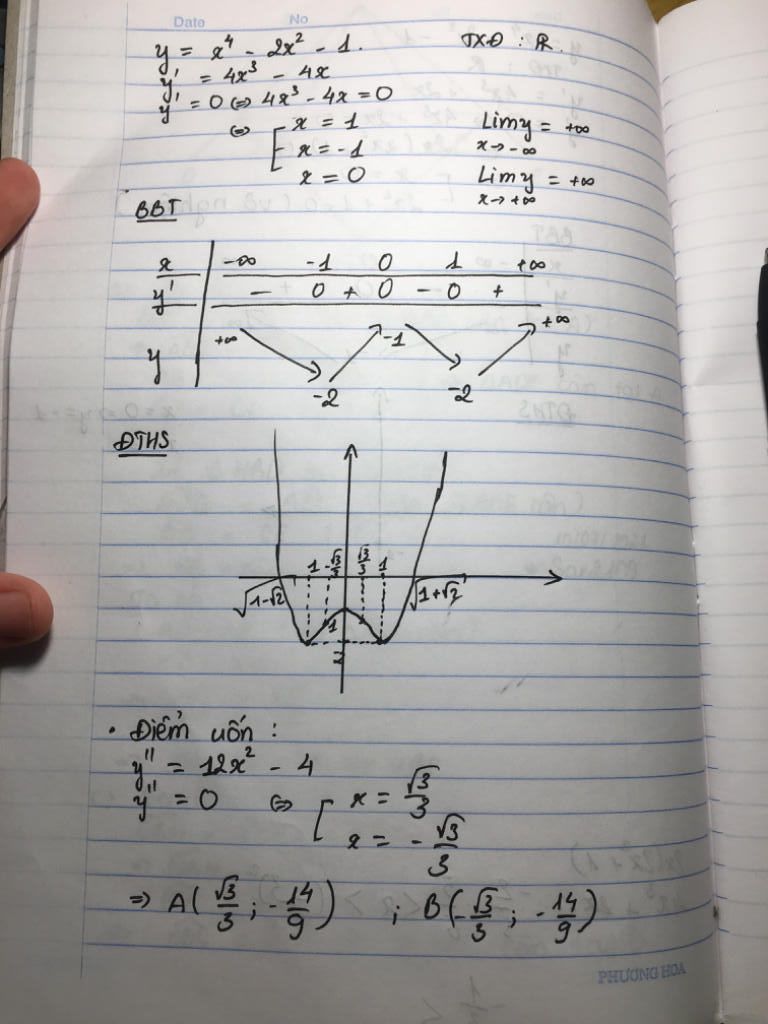 Date No
y = x⁴ - 2x² - 1. TXĐ : R.
y' = 4x³ - 4x
y' = 0 ⇔ 4x³ - 4x = 0
⇔ [ x = 1 Lim y = +∞
x = -1 x → -∞
x = 0 Lim y = +∞
x → +∞
BBT
x -∞ -1 0 1 +∞
y' - 0 + 0 - 0 +
y +∞ -2 -1 -2 +∞
ĐTHS
1 -√3/3 √3/3 1
√1-√2 √1+√2
1
2
• Điểm uốn :
y'' = 12x² - 4
y'' = 0 ⇔ [ x = √3/3
x = -√3/3
⇒ A(√3/3 ; -14/9) ; B(-√3/3 ; -14/9)
PHƯƠNG HOA